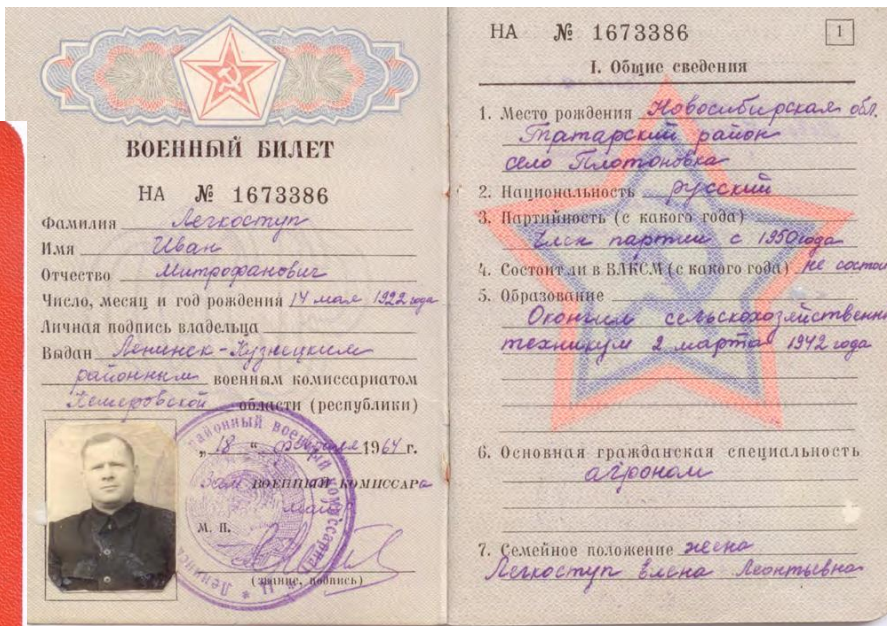 ВОЕННЫЙ БИЛЕТ
НА № 1673386
Фамилия Легкоступ
Имя Иван
Отчество Митрофанович
Число, месяц и год рождения 14 мая 1922 года
Личная подпись владельца
Выдан Ленинск-Кузнецким
районным военным комиссариатом
Кемеровской области (республики)
„18“ февраля 1964 г.
Зам ВОЕННЫЙ КОМИССАРа
М. П.
(звание, подпись)
НА № 1673386
1
I. Общие сведения
1. Место рождения Новосибирская обл.
Татарский район
село Плотоновка
2. Национальность русский
3. Партийность (с какого года)
Член партии с 1950 года
4. Состоит ли в ВЛКСМ (с какого года) не состои
5. Образование
Окончил сельскохозяйственн
техникум 2 марта 1942 года
6. Основная гражданская специальность
агроном
7. Семейное положение жена
Легкоступ Елена Леонтьевна